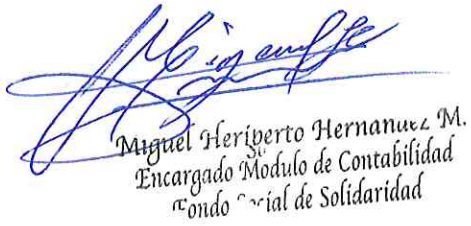 Miguel Heriberto Hernandez M.
Encargado Modulo de Contabilidad
Fondo Social de Solidaridad